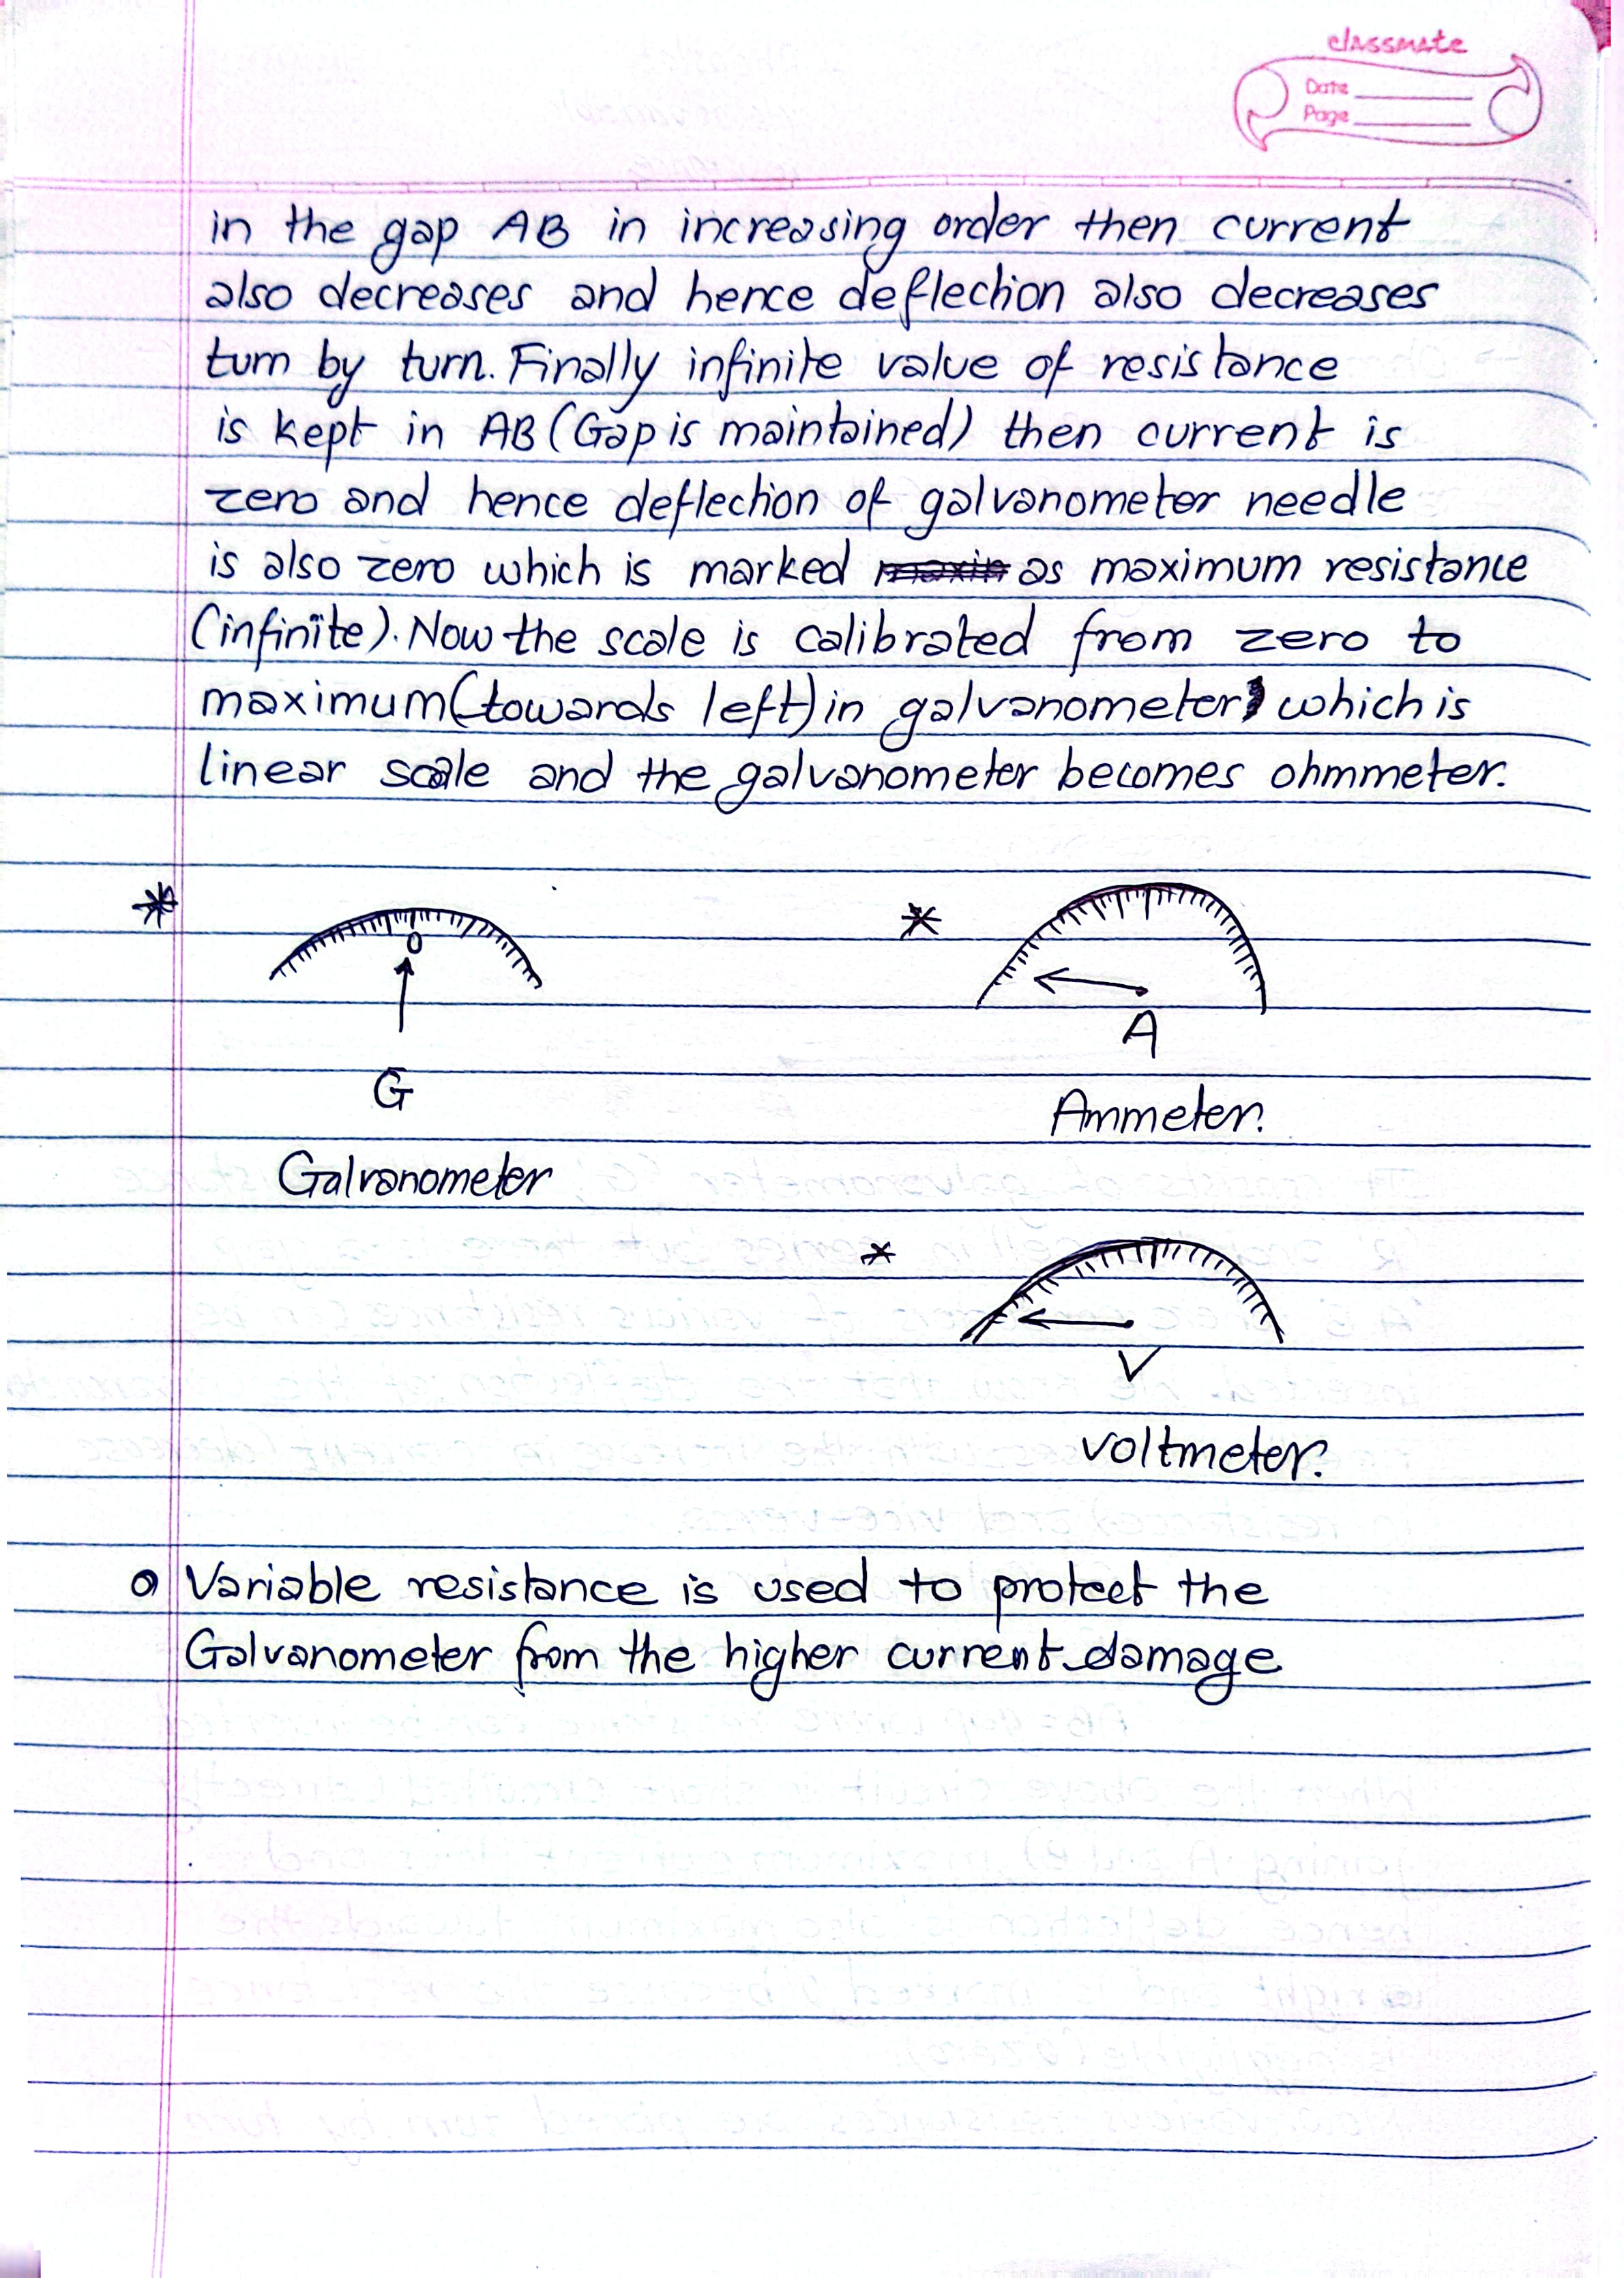 classmate
Date
Page
in the gap AB in increasing order then current
also decreases and hence deflection also decreases
turn by turn. Finally infinite value of resistance
is kept in AB (Gap is maintained) then current is
zero and hence deflection of galvanometer needle
is also zero which is marked as maximum resistance
(infinite). Now the scale is calibrated from zero to
maximum (towards left) in galvanometer, which is
linear scale and the galvanometer becomes ohmmeter.
*
*
0
A
G
Ammeter.
Galvanometer
*
V
voltmeter.
Variable resistance is used to protect the
Galvanometer from the higher current damage